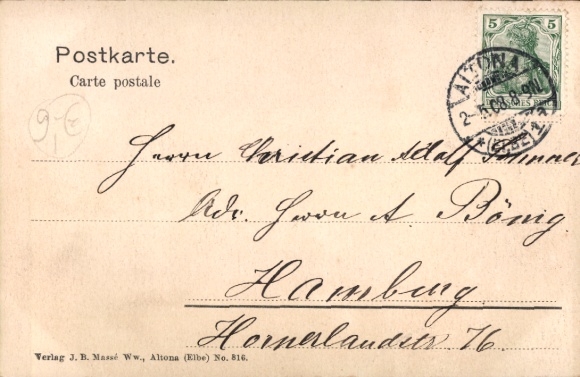 Postkarte.
Carte postale
5 5
ALTONA
8-9N.
(ELBE)
9,- €
Herrn Christian Adolf
Adr. Herrn A. Bönig.
Hamburg
Hornerlandstr. 76.
Verlag J. B. Massé Ww., Altona (Elbe) No. 816.